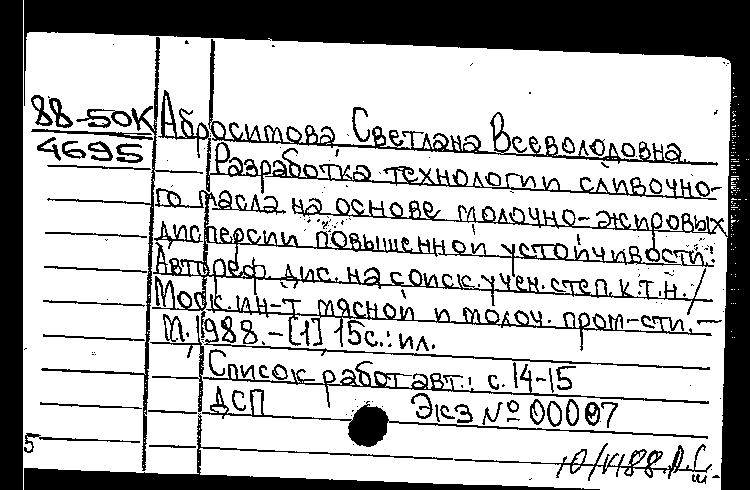 88-50К Абросимова, Светлана Всеволодовна
4695 Разработка технологии сливочно-
го масла на основе молочно-жировых
дисперсии повышенной устойчивости:
Автореф. дис. на соиск. учен. степ. к.т.н./
Моск. ин-т мясной и молоч. пром-сти.-
М., 1988.-[1] 15с.: ил.
Список работ авт.: с. 14-15
ДСП Экз № 00007
5